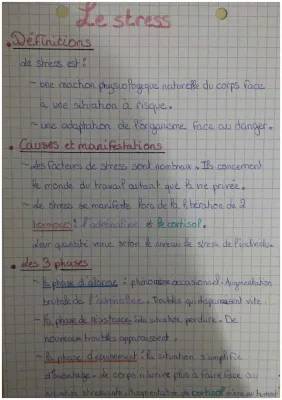 Le stress
• Définitions
Le stress est :
- une réaction physiologique naturelle du corps face
à une situation à risque.
- une adaptation de l'organisme face au danger.
• Causes et manifestations
- Les facteurs de stress sont nombreux. Ils concernent
le monde du travail autant que la vie privée.
- Le stress se manifeste lors de la libération de 2
hormones : l'adrénaline et le cortisol.
Leur quantité varie selon le niveau de stress de l'individu.
• Les 3 phases
- La phase d'alarme : phénomène occasionnel. Augmentation
brutale de l'adrénaline. Troubles qui disparaissent vite.
- La phase de résistance : la situation perdure. De
nouveaux troubles apparaissent.
- La phase d'épuisement : la situation s'amplifie
d'avantage. Le corps n'arrive plus à faire face au
cortisol